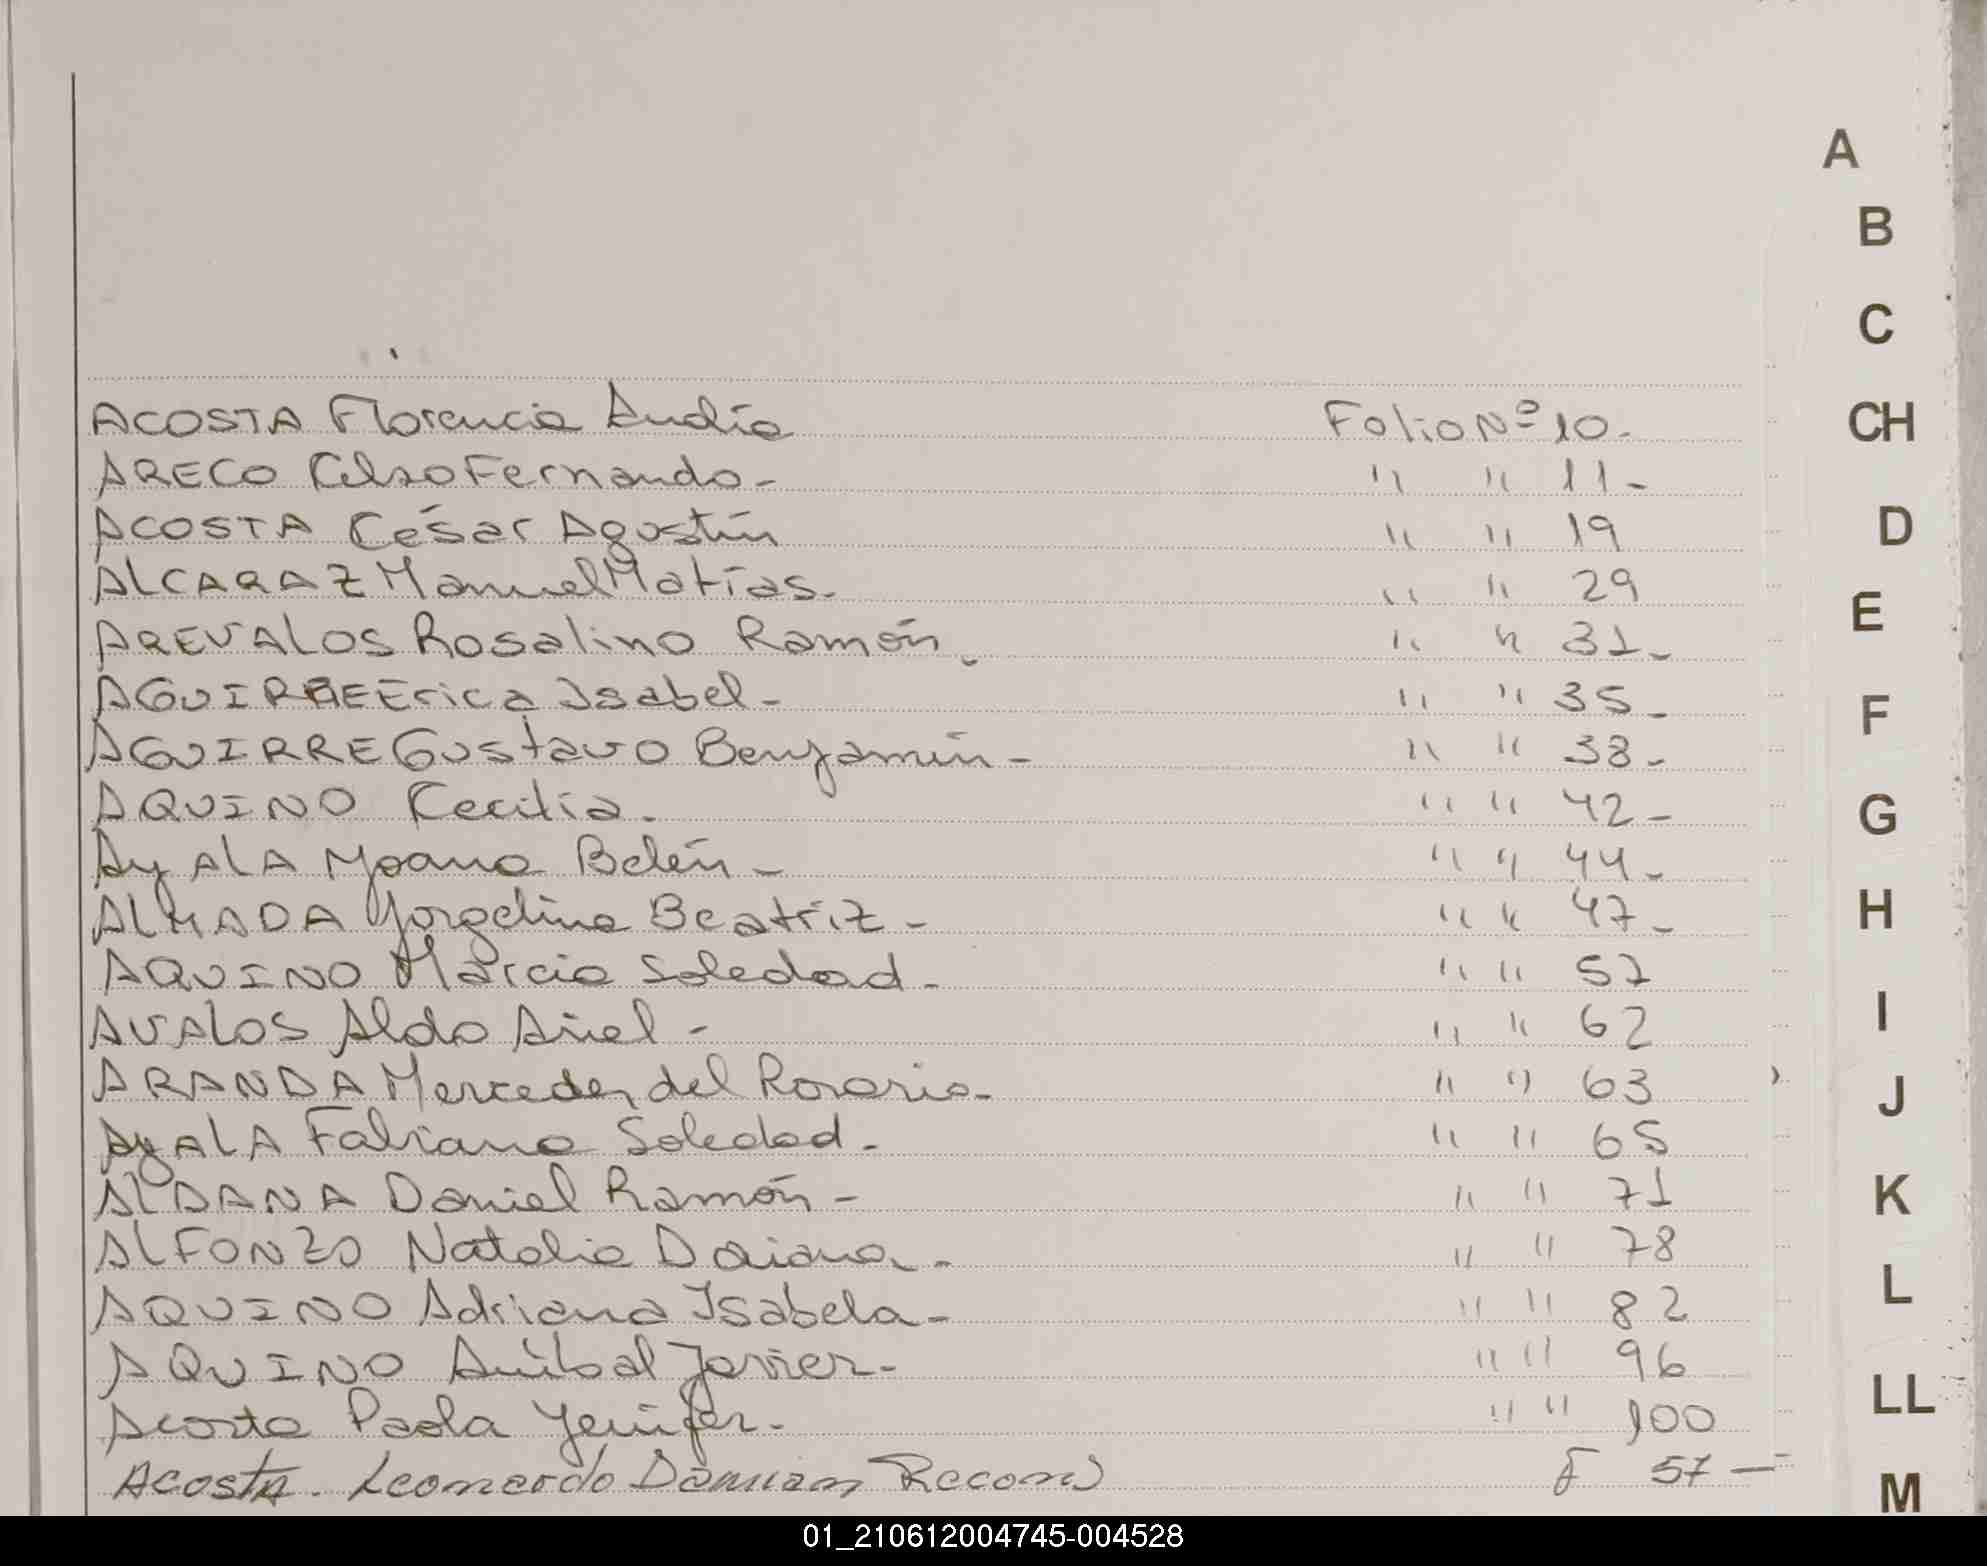 ACOSTA Florencia Andía Folio Nº 10.
ARECO Celso Fernando- " " 11-
ACOSTA César Agustín " " 19
ALCARAZ Manuel Matías. " " 29
AREVALOS Rosalino Ramón. " " 31-
AGUIRRE Erica Isabel- " " 35-
AGUIRRE Gustavo Benjamín- " " 38-
AQUINO Cecilia. " " 42-
AyALA Yoana Belén- " " 44-
ALMADA Yorgelina Beatriz- " " 47-
AQUINO Marcia Soledad. " " 57
AVALOS Aldo Ariel- " " 62
ARANDA Mercedes del Rosario- " " 63
AyALA Fabiana Soledad. " " 65
ALDANA Daniel Ramón- " " 71
ALFONZO Natalia Daiana. " " 78
AQUINO Adriana Isabela- " " 82
AQUINO Anibal Javier- " " 96
Acosta Paola Yenifer. " " 100
Acosta. Leonardo Damian Recon F 57-
A
B
C
CH
D
E
F
G
H
I
J
K
L
LL
M
01_210612004745-004528